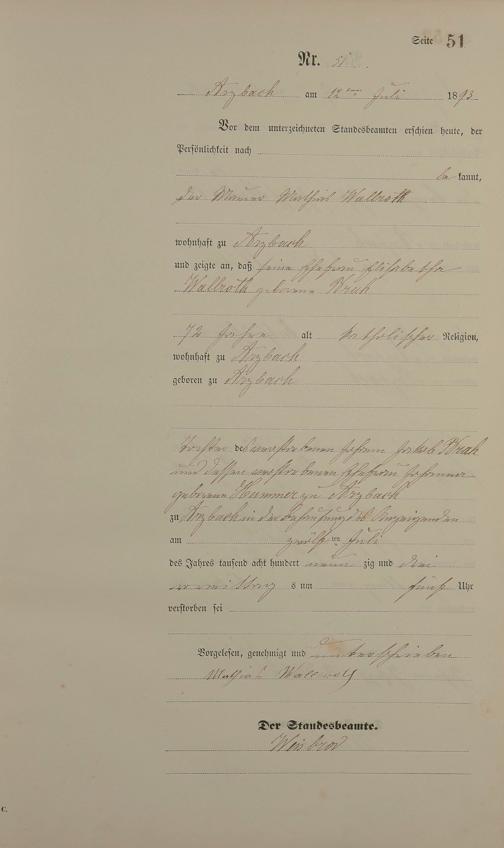 Seite 51
Nr. 51.
Arzbach am 12ten Juli 1893
Vor dem unterzeichneten Standesbeamten erschien heute, der
Persönlichkeit nach
be kannt,
der Maurer Mathias Wallroth
wohnhaft zu Arzbach
und zeigte an, daß seine Ehefrau Elisabetha
Wallroth geborene
72 Jahre alt katholischer Religion,
wohnhaft zu Arzbach
geboren zu Arzbach
Tochter des verstorbenen Jakob
und dessen verstorbenen Ehefrau
geborene Hammer zu Arzbach
zu Arzbach in der Behausung des Anzeigenden
am zwölften Juli
des Jahres tausend acht hundert neun zig und drei
vormittags um fünf Uhr
verstorben sei
Vorgelesen, genehmigt und unterschrieben
Mathias Wallroth
Der Standesbeamte.
Weisbrod
C.